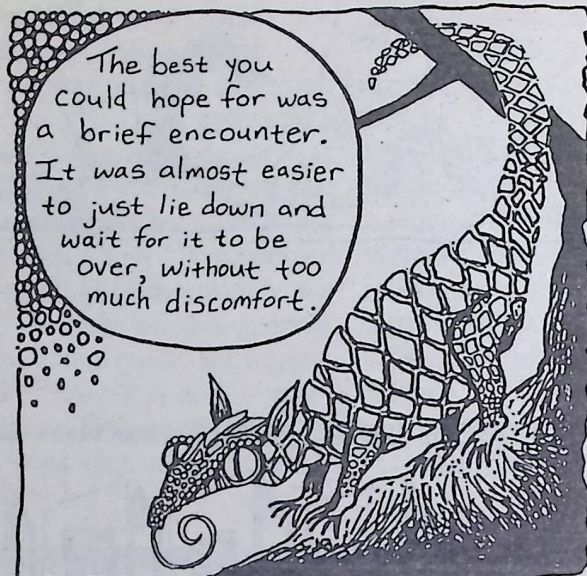 The best you
could hope for was
a brief encounter.
It was almost easier
to just lie down and
wait for it to be
over, without too
much discomfort.